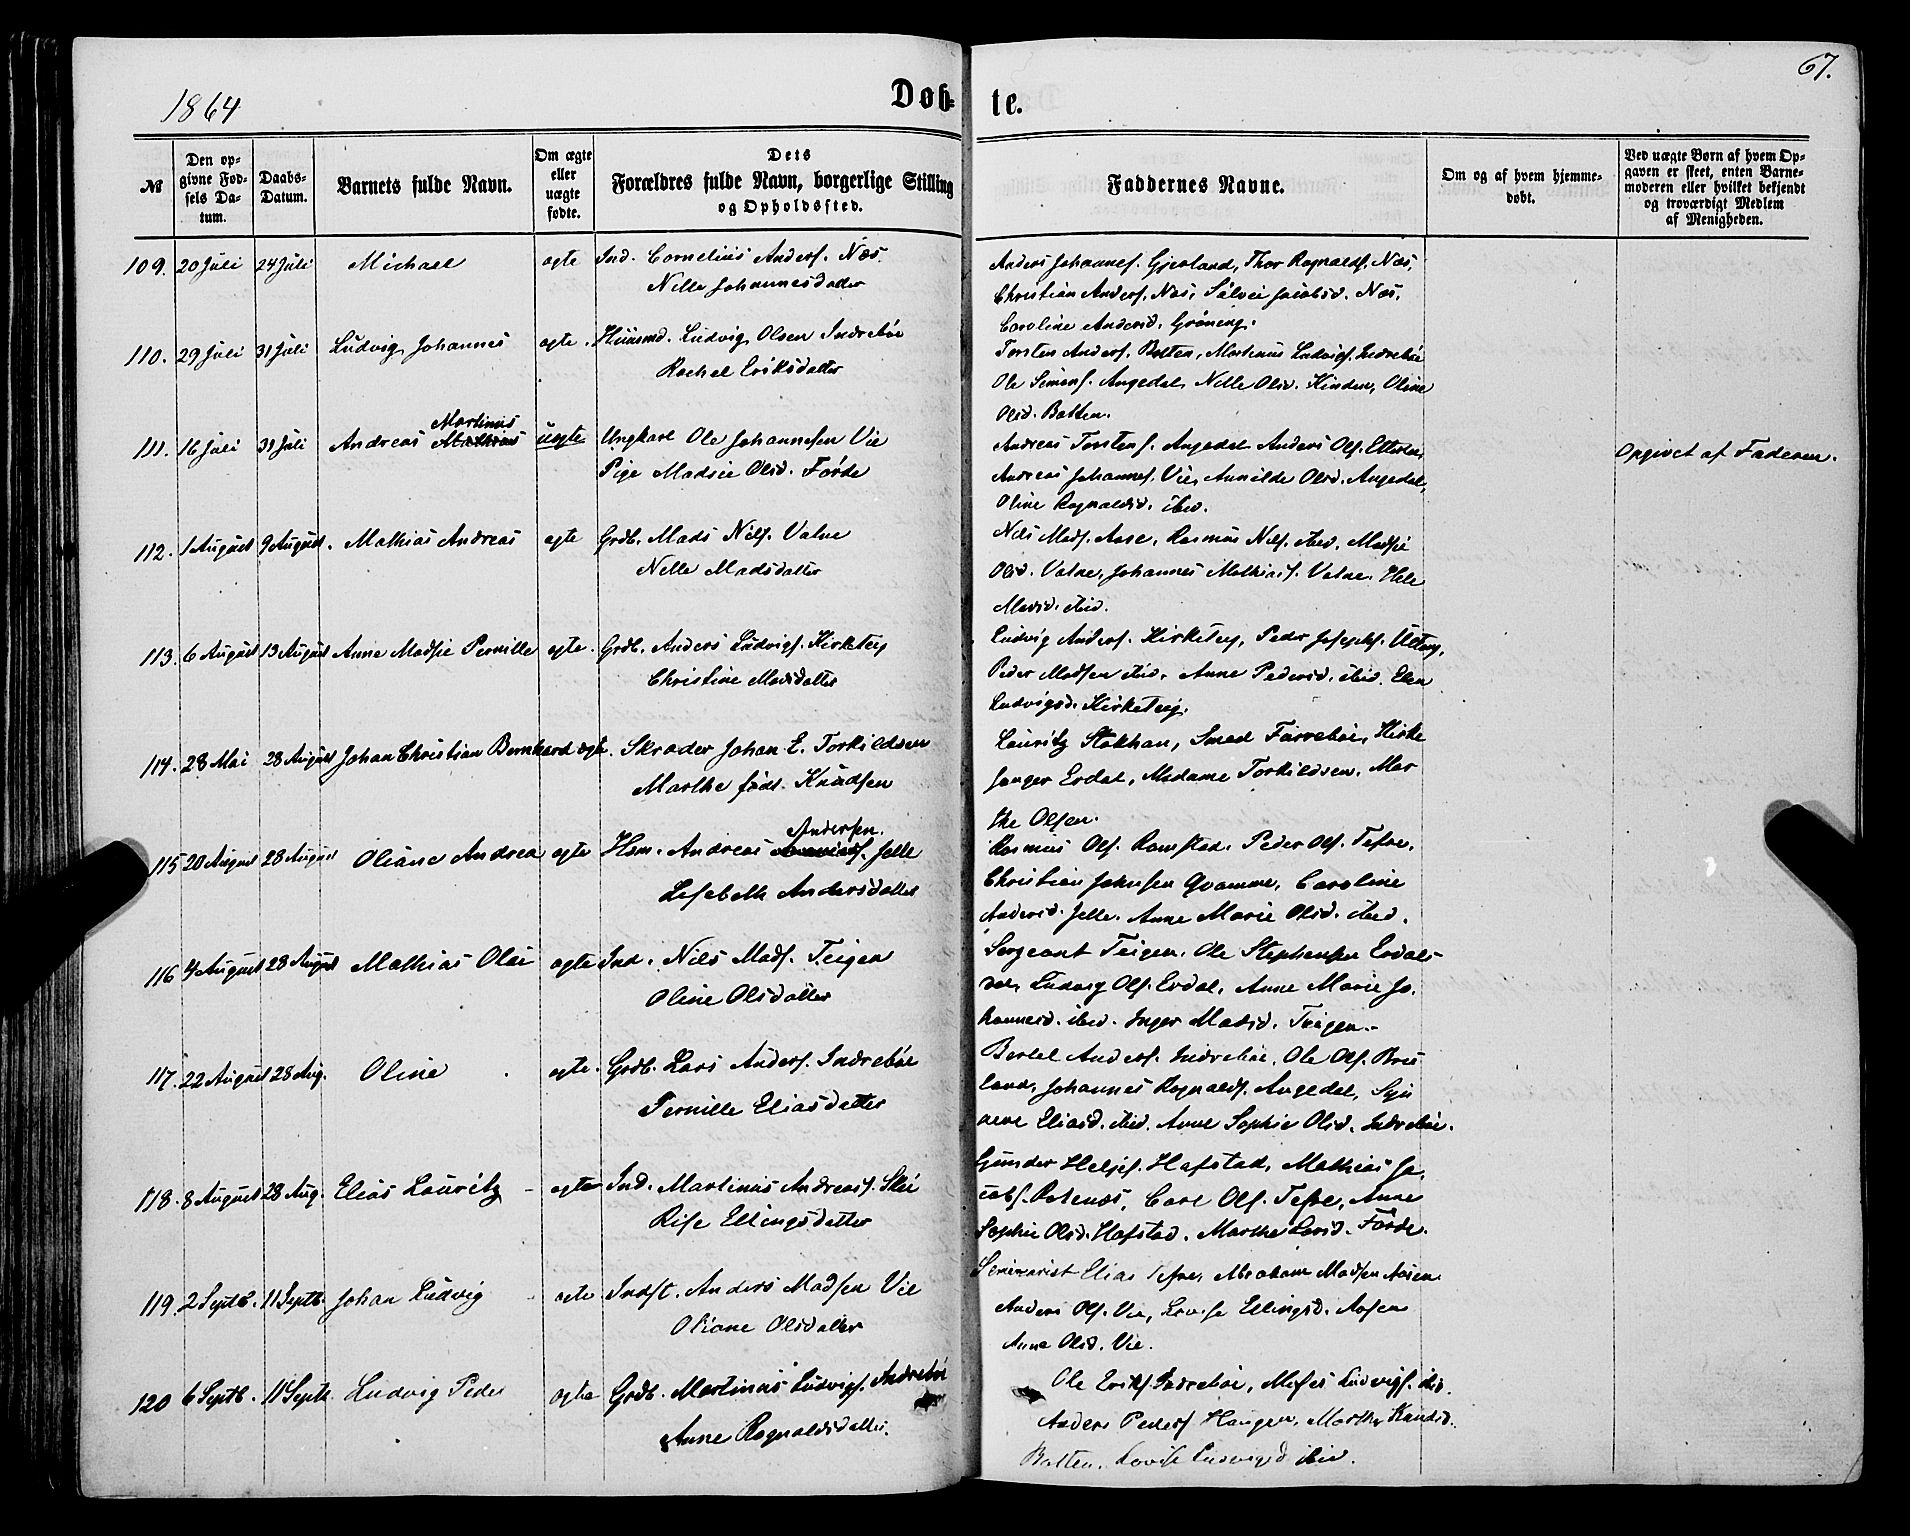 67.
1864
Døb- te.
№
Den op-
givne Fød-
sels Da-
tum.
Daabs-
Datum.
Barnets fulde Navn.
Om ægte
eller
uægte
fødte.
Dets
Forældres fulde Navn, borgerlige Stilling
og Opholdssted.
Faddernes Navne.
Om og af hvem hjemme-
døbt.
Ved uægte Børn af hvem Op-
gaven er skeet, enten Barne-
moderen eller hvilket bekjendt
og troværdigt Medlem
af Menigheden.
109. 20 Juli 24 Juli Michael ægte Ind. Cornelius Anders. Næs.
Nille Johannesdatter
Anders Johannes. Gjesland, Thor Rognalds. Næs,
Christian Anders. Næs, Silvei Jacobsd. Næs,
Caroline Andersd. Grøneng.
110. 29 Juli 31 Juli Ludvig Johannes ægte. Huusmd. Ludvig Olsen Indrebøe
Rachel Eriksdatter
Torsten Anders. Botten, Martinus Ludvigs. Indrebøe
Ole Simons. Angedal, Nille Olsd. Hinden, Oline
Olsd. Botten.
111. 16 Juli 31 Juli Andreas Martinus uægte Ungkarl Ole Johannesen Vie
Pige Madsie Olsd. Førde
Andreas Torstens. Angedal Anders Ols.
Andreas Johannes. Vie, Annilde Olsd. Angedal,
Oline Rognaldsd. ibid.
Opgivet af Faderen.
112. 1 August 9 August. Mathias Andreas ægte Grdb. Mads Nils. Valne
Nille Madsdatter
Nils Mads. Aase, Rasmus Nils. ibid, Madsie
Olsd. Valne, Johannes Mathias. Valne. Hele
Madsd. ibid.
113. 6 August 13 August Anne Madsie Pernille ægte. Grdb. Anders Ludvigs. Kirketeig
Christine Madsdatter
Ludvig Anders. Kirketeig, Peder Josephs.
Peder Madsen ibid, Anne Pedersd. ibid. Elen
Ludvigsd. Kirketeig.
114. 28 Mai 28 August Johan Christian Bernhard ægte. Skræder Johan E. Torkildsen
Marthe født Knudsen
Lauritz Stokhan, Smed Farrebøe, Kirke
sanger Erdal, Madame Torkildsen, Mar
the Olsen.
115 20 August 28 August Oliane Andrea ægte Hsm. Andreas Andersen. Jelle
Lisebeth Andersdatter
Rasmus Ols. Ramstad. Peder Ols. Tefre,
Christian Johnsen Qvamme, Caroline
Andersd. Jelle. Anne Marie Olsd. ibid.
116 4 August 28 August Mathias Olai ægte Ind. Nils Mads. Teigen
Oline Olsdatter
Sergeant Teigen, Ole Stephensen Erdals-
Ludvig Ols. Erdal, Anne Marie Jo.
hannesd. ibid. Inger Madsd. Teigen.
117. 22 August 28 Aug. Oline ægte. Grdb. Lars Anders. Indrebøe
Pernille Eliasdatter
Bertel Anders. Indrebøe, Ole Ols. Brei
land, Johannes Rognalds. Angedal, Syn
neve Eliasd. ibid. Anne Sophie Olsd. Indrebøe.
118. 8 August 28 Aug. Elias Lauritz ægte Ind. Martinus Andreas. Skei
Rise Ellingsdatter
Gunder Heljes. Hafstad, Mathias Ja.
cobs. Rotenæs, Carl Ols. Tefre, Anne
Sophie Olsd. Hafstad. Marthe Larsd. Førde.
119. 2 Septb. 11 Septb. Johan Ludvig ægte Indst. Anders Madsen Vie
Oliane Olsdatter
Seminarist Elias Tefre, Abraham Madsen Aasen
Anders Ols. Vie, Lovise Ellingsd. Aasen
Anne Olsd. Vie.
120 6 Septb. 11 Septb. Ludvig Peder ægte Grdb. Martinus Ludvigs. Indrebøe
Anne Rognaldsdatter.
Ole Eriks. Indrebøe, Moses Ludvigs. ibid.
Anders Peders. Haugen, Marthe Knudsd.
Botten, Lovise Ludvigsd ibid.